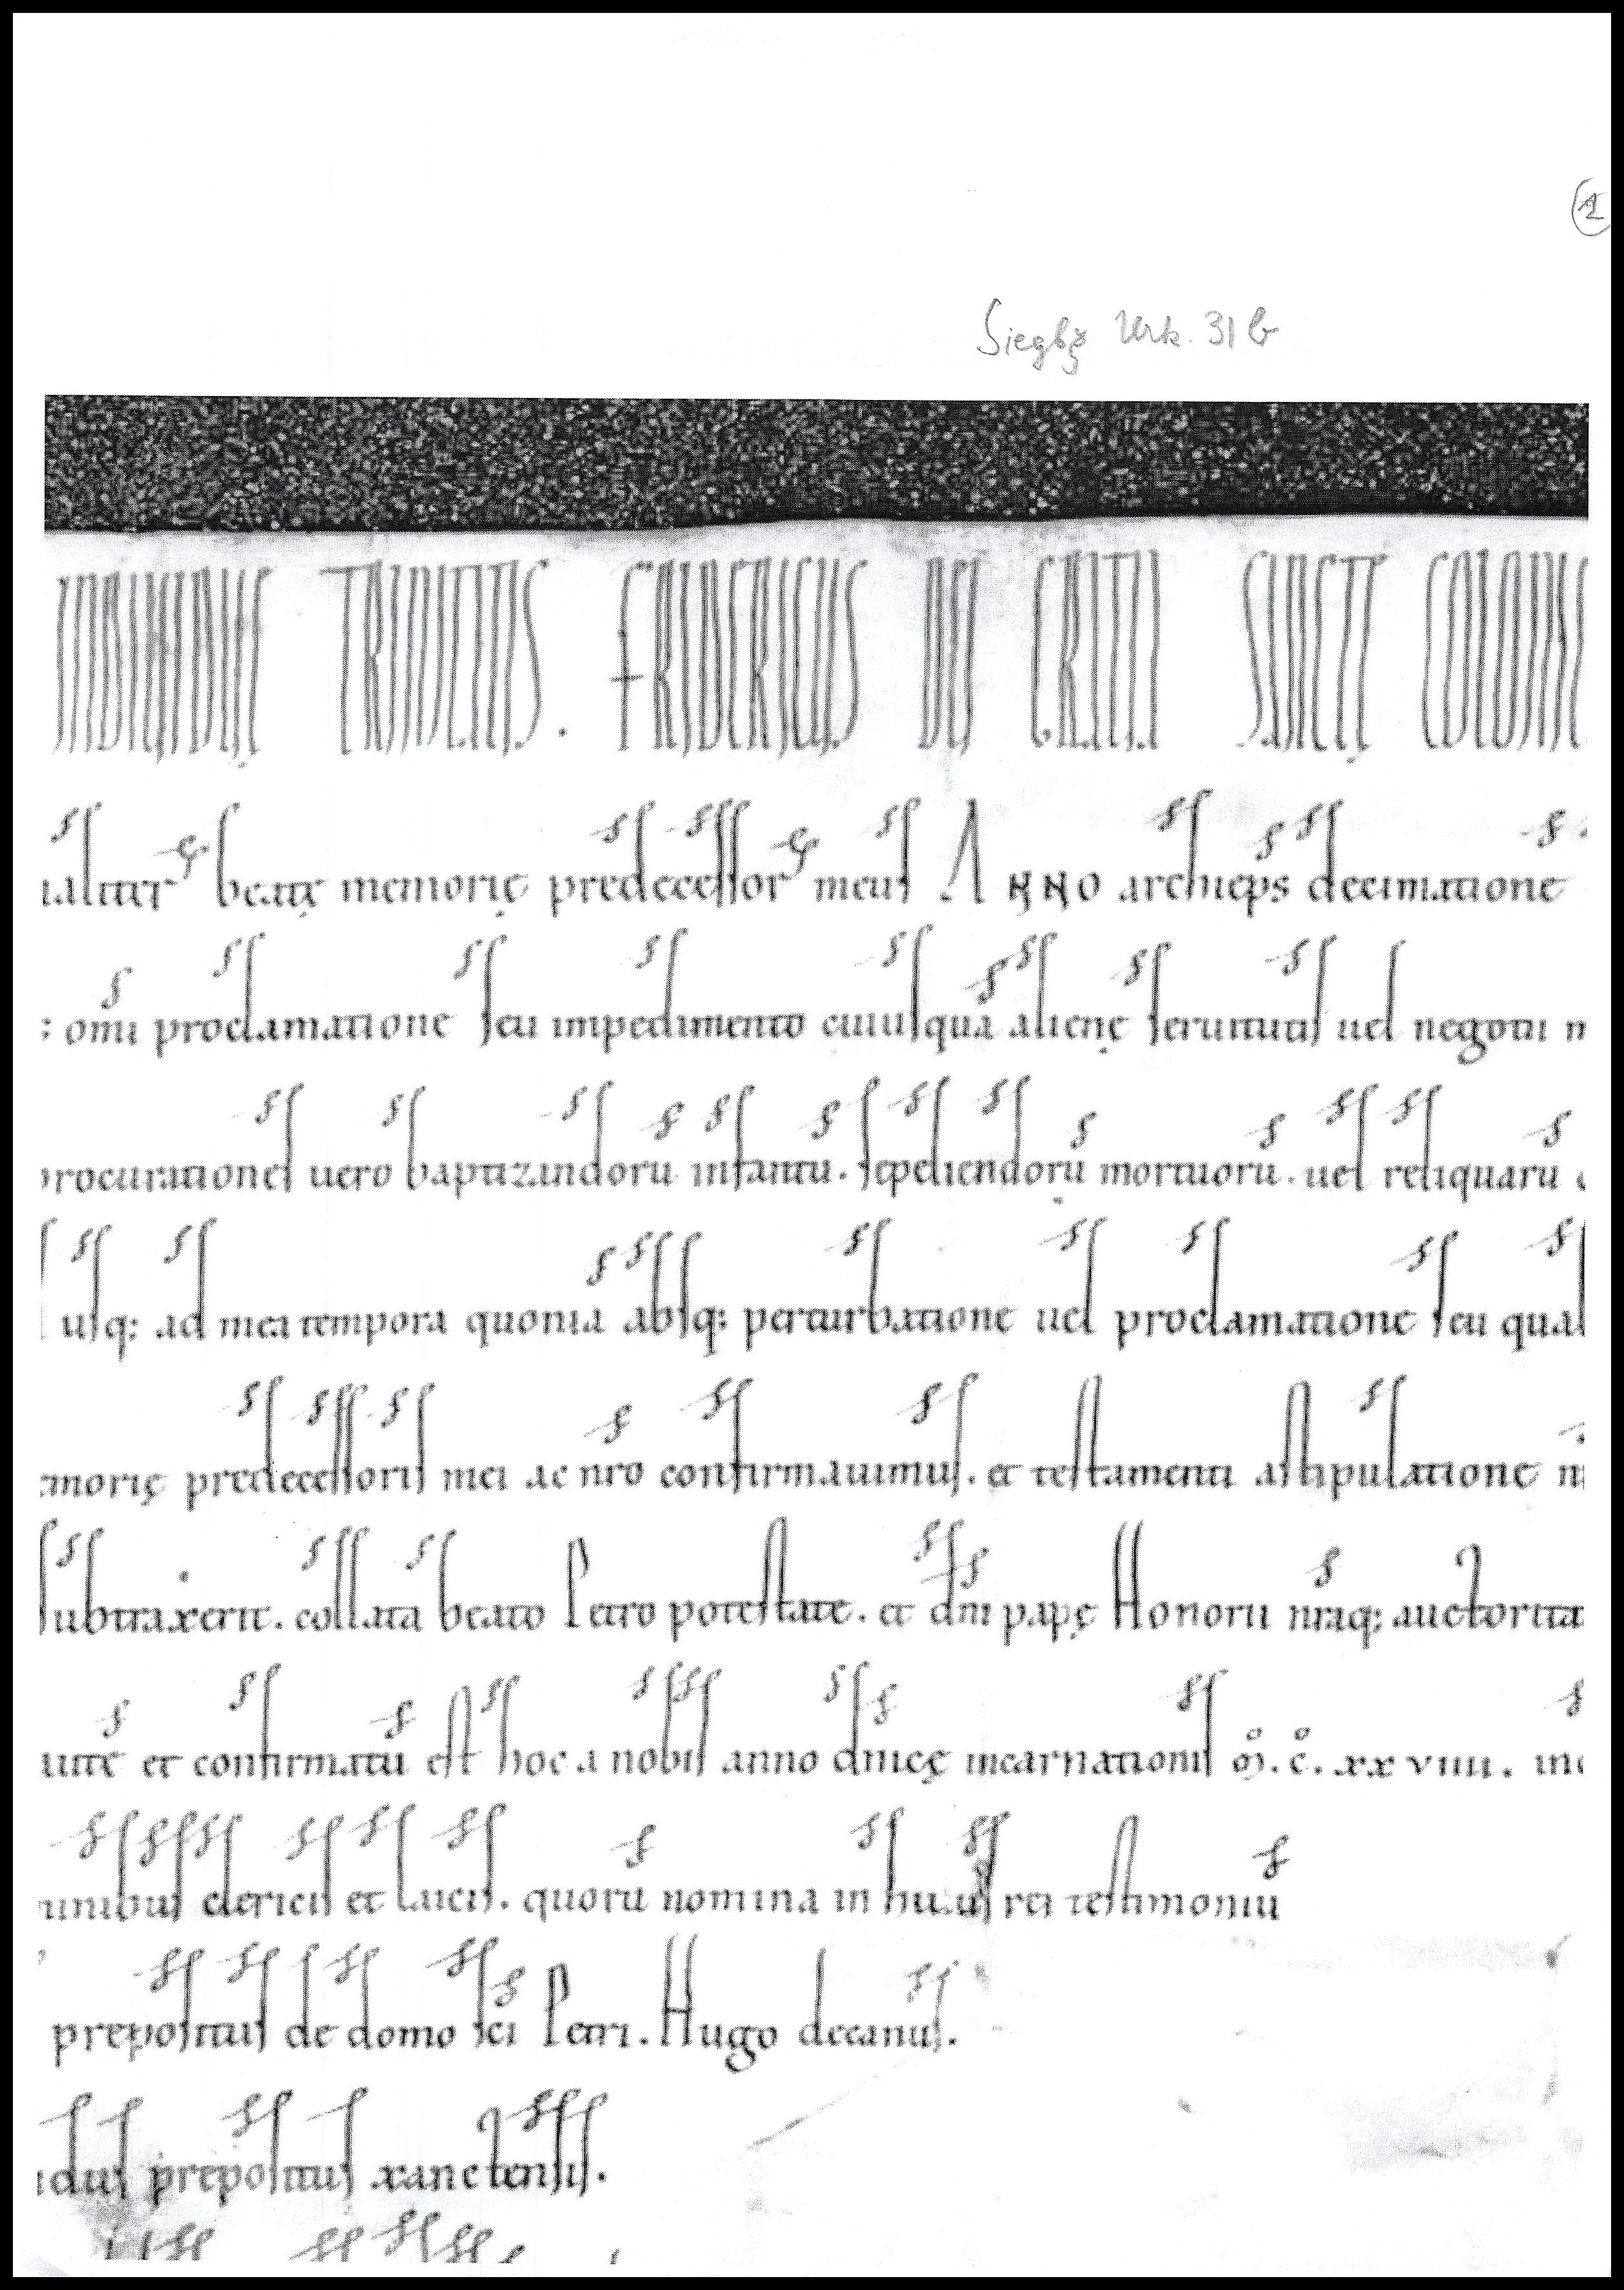 1
Siegbg Urk. 31 b
INDIVIDVE TRINITATIS. FRIDERICUS DEI GRATIA SANCTE COLONIE
ualiter beatę memorię predecessor meus Anno archiep̄s decimatione
: om̄i proclamatione seu impedimento cuiusquā alienę seruitutis uel negotii n
procurationes uero baptizandorū infantū. sepeliendorū mortuorū. uel reliquarū
usq; ad mea tempora quoniā absq; perturbatione uel proclamatione seu qual
emorię predecessoris mei ac nr̄o confirmauimus. et testamenti astipulatione n
subtraxerit. collata beato Petro potestate. et dn̄i papę Honorii nr̄aq; auctorita
uitē et confirmatū est hoc a nobis anno dn̄icę incarnationis m̊. c̊. xxviiii. in
munibus clericis et laicis. quorū nomina in huius rei testimoniū
prepositus de domo sc̄i Petri. Hugo decanus.
idus prepositus xanctensis.